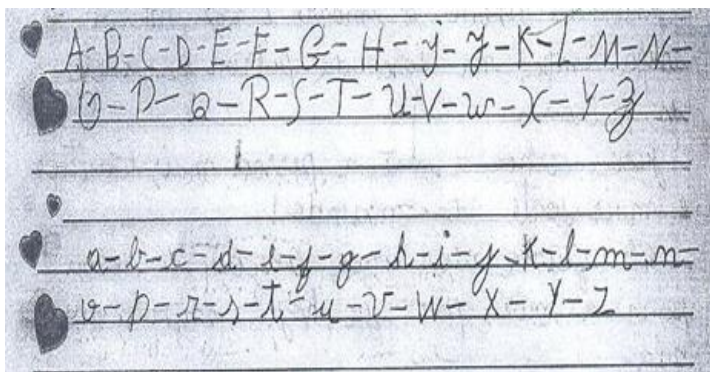 A-B-C-D-E-F-G-H-j-y-K-L-M-N-
O-P-Q-R-S-T-U-V-w-X-Y-z
a-b-c-d-e-f-g-h-i-j-K-l-m-n-
o-p-r-s-t-u-v-W-X-Y-Z